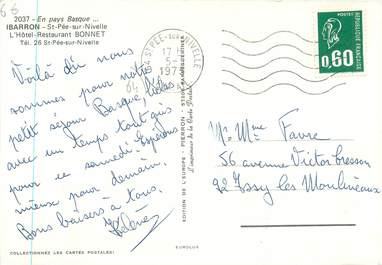 2037 - En pays Basque ...
IBARRON - St-Pée-sur-Nivelle
L'Hôtel-Restaurant BONNET
Tél. 26 St-Pée-sur-Nivelle
Voilà d'où nous
sommes pour notre
petit séjour Basque, hélas
avec un temps tout gris
pour ce samedi. Espérons
mieux pour demain.
Bons baisers à tous.
Hélène
COLLECTIONNEZ LES CARTES POSTALES!
EDITION DE L'EUROPE - PIERRON -
L'imprimeur de la Carte Postale
EUROLUX
64 ST PÉE-SUR-NIVELLE
POSTES
0,60
M. Mme Favre
56 avenue Victor Cresson
92 Issy les Moulineaux